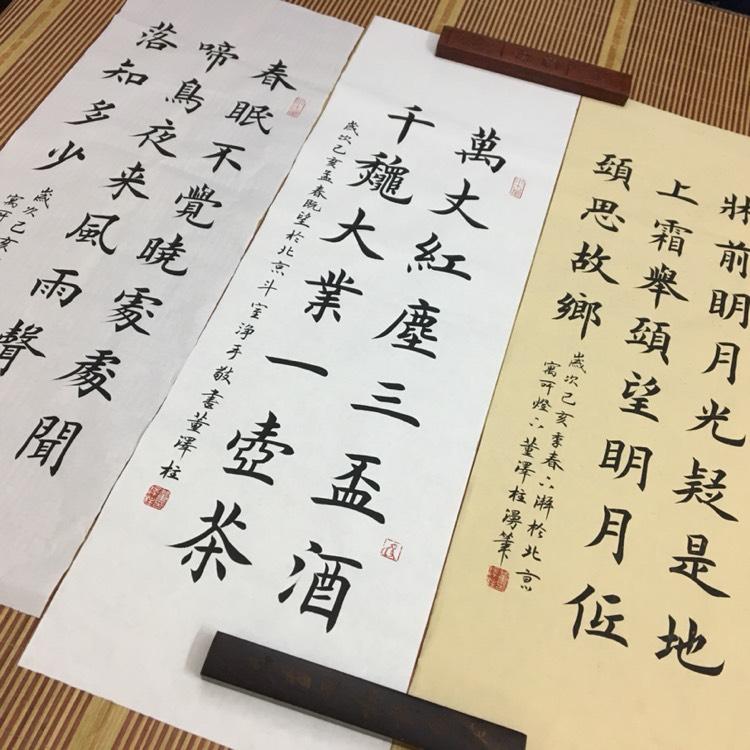 牀前明月光疑是地
上霜舉頭望明月低
頭思故鄉
歲次己亥季春下澣於北京
寓所燈下董澤柱筆
萬丈紅塵三盃酒
千龝大業一壺茶
歲次己亥孟春既望於北京斗室淨手敬書董澤柱
春眠不覺曉處處聞
啼鳥夜来風雨聲
落知多少
歲次己亥
寓所